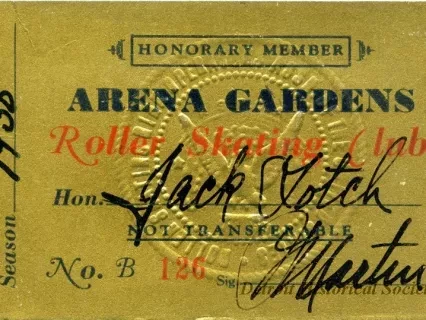 HONORARY MEMBER
ARENA GARDENS
Roller Skating Club
Hon. Jack Fotch
NOT TRANSFERABLE
No. B 126 Sig. Martin
Detroit Historical Society
Season 1936